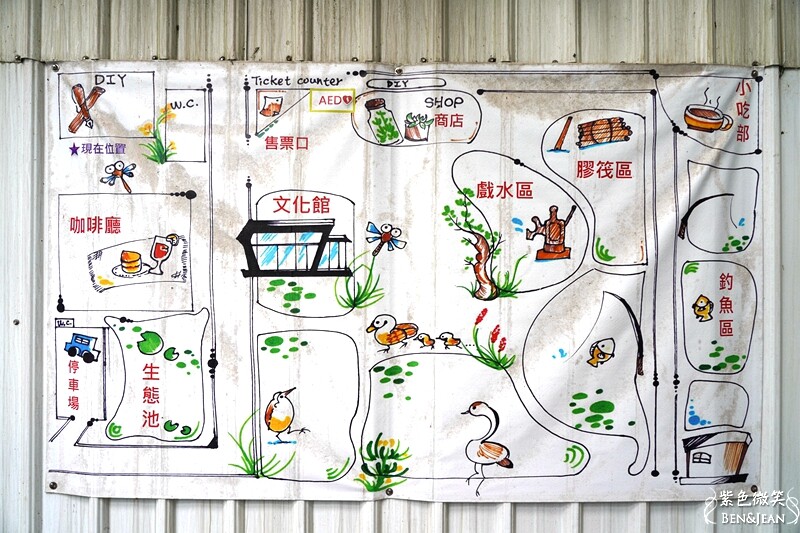 DIY
W.C.
★現在位置
Ticket counter
AED
售票口
DIY
SHOP
商店
小吃部
膠筏區
戲水區
文化館
咖啡廳
釣魚區
W.C.
停車場
生態池
紫色微笑
BEN&JEAN